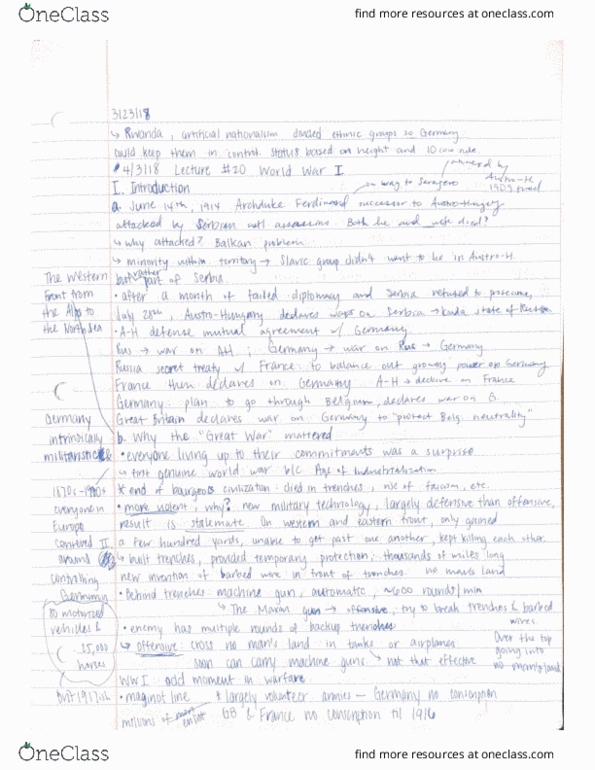 OneClass
find more resources at oneclass.com
3/23/18
↳ Rwanda, artificial nationalism divided ethnic groups so Germany
could keep them in control. status based on height and 10 cow rule.
* 4/3/18 Lecture #20 World War I
annexed by
Austro-H
1908
I. Introduction
on way to Sarajevo
a. June 14th, 1914 Archduke Ferdinand successor to Austro-Hungary
attacked by Serbian assassins. Both he and wife died?
↳ why attacked? Balkan problem
↳ minority within territory → Slavic group didn't want to be in Austro-H.
but rather part of Serbia
The Western
Front from
the Alps to
the North Sea
• after a month of failed diplomacy and Serbia refused to
July 28th, Austro-Hungary declares war on Serbia → kinda state of Russia
• A-H defense mutual agreement w/ Germany
Rus → war on AH ; Germany → war on Rus → Germany
Russia secret treaty w/ France to balance out growing power on Germany
France then declares on Germany A-H → declare on France
Germany: plan to go through Belgium, declares war on B.
Great Britain declares war on Germany to "protect Belg. neutrality"
Germany
intrinsically
militaristic &
b. Why the "Great War" mattered
• everyone living up to their commitments was a surprise
↳ first genuine world war b/c Age of Industrialization
1870s-1900s
everyone in
Europe
centered
around
controlling
Germany
* end of bourgeois civilization: died in trenches, rise of fascism, etc.
• more violent, why? new military technology, largely defensive than offensive,
result is stalemate. On western and eastern front, only gained
a few hundred yards, unable to get past one another, kept killing each other.
↳ built trenches, provided temporary protection; thousands of miles long
new invention of barbed wire in front of trenches. no mans land
• Behind trenches: machine gun, automatic, ~600 rounds/min
↳ The Maxim gun → offensive, try to break trenches & barbed
wires.
10 motorized
vehicles &
25,000
horses
• enemy has multiple rounds of backup trenches
↳ offensive: cross no man's land in tanks or airplanes
soon can carry machine guns ↳ not that effective
Over the top
going into
no man's land
WWI odd moment in warfare
until 1917ish
• maginot line * largely volunteer armies — Germany no conscription
millions of men enlist GB & France no conscription til 1916
OneClass
find more resources at oneclass.com